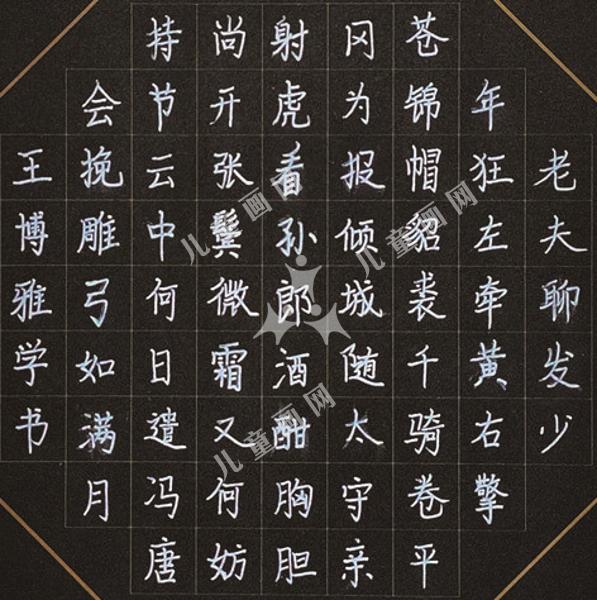 老夫聊发少
年狂左牵黄右擎
苍锦帽貂裘千骑卷平
冈为报倾城随太守亲
射虎看孙郎酒酣胸胆
尚开张鬓微霜又何妨
持节云中何日遣冯唐
会挽雕弓如满月
王博雅学书
儿童画网
儿童画网
儿童画网